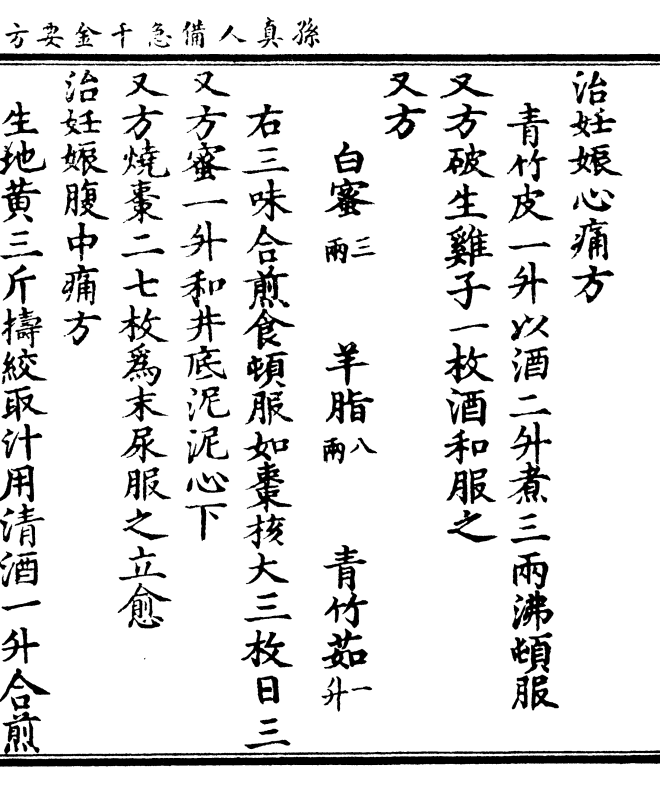 孫真人備急千金要方
治妊娠心痛方
青竹皮一升以酒二升煮三兩沸頓服
又方破生雞子一枚酒和服之
又方
白蜜三兩 羊脂八兩 青竹茹一升
右三味合煎食頓服如棗核大三枚日三
又方蜜一升和井底泥泥心下
又方燒棗二七枚爲末尿服之立愈
治妊娠腹中痛方
生地黄三斤擣絞取汁用清酒一升合煎